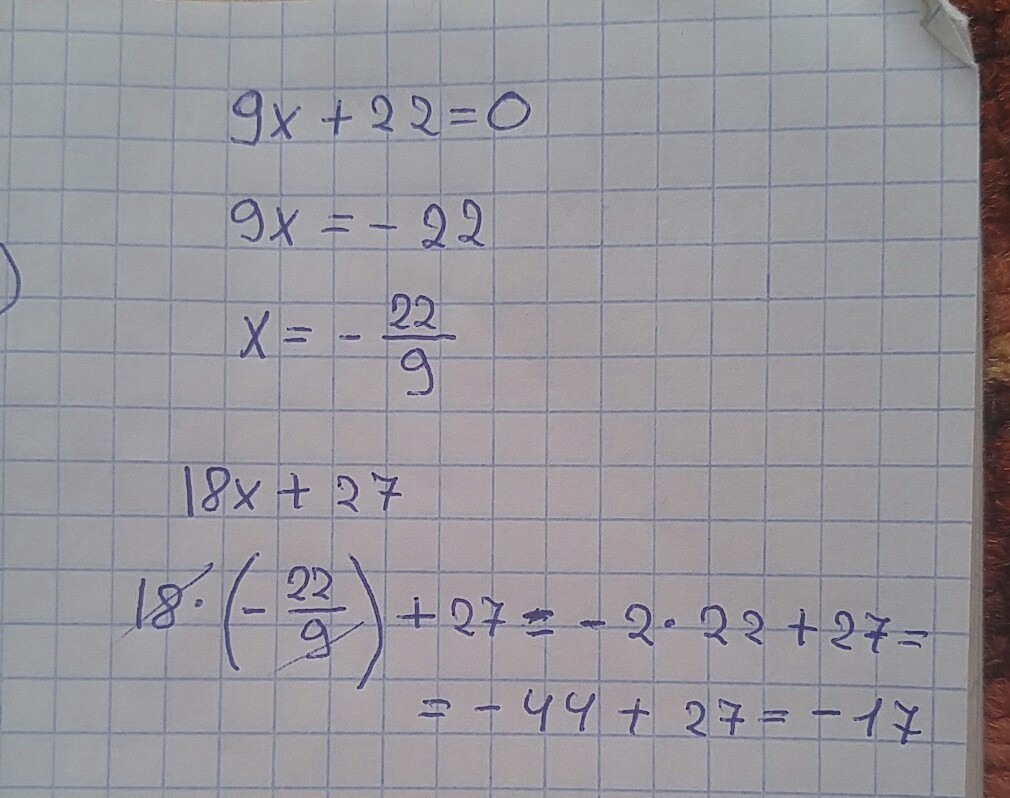 9x + 22 = 0
9x = - 22
x = - 22/9
18x + 27
18 · (- 22/9) + 27 = - 2 · 22 + 27 =
= - 44 + 27 = - 17